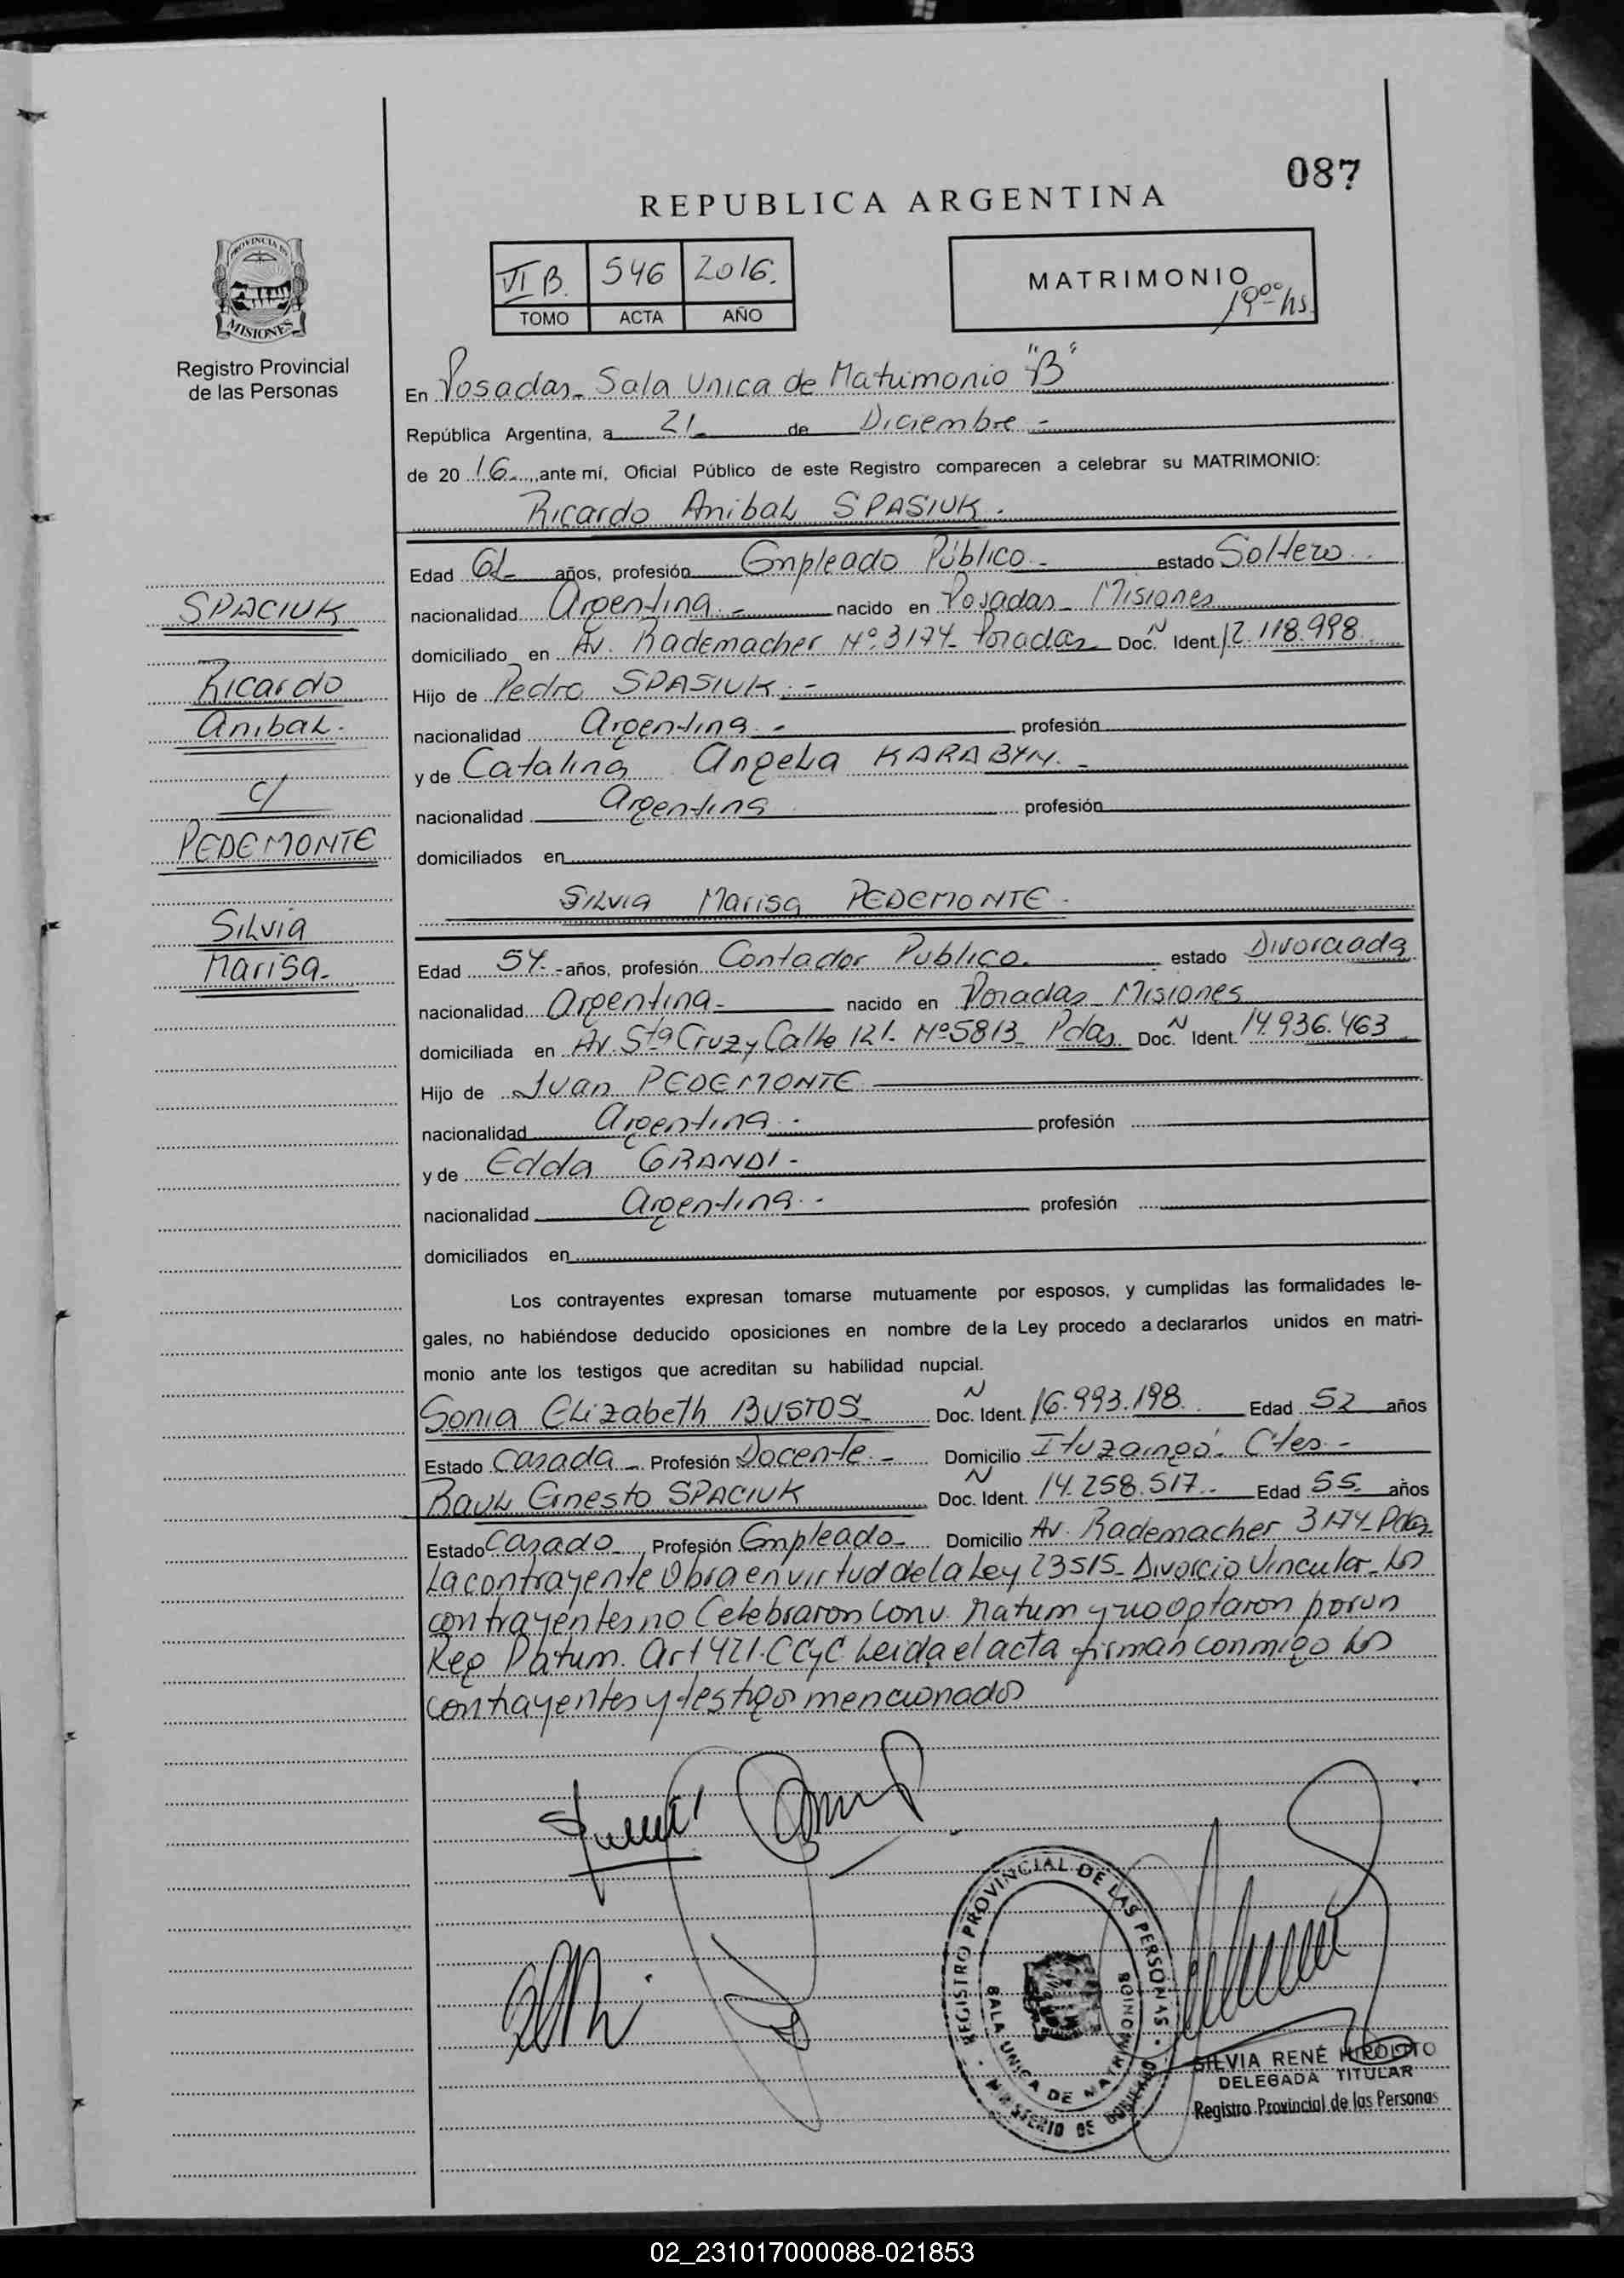 087
REPUBLICA ARGENTINA
PROVINCIA DE
MISIONES
Registro Provincial
de las Personas
VI B. 546 2016.
TOMO ACTA AÑO
MATRIMONIO
19⁰⁰ hs.
En Posadas - Sala Unica de Matrimonio "B"
República Argentina, a 21 de Diciembre -
de 20 16 ante mí, Oficial Público de este Registro comparecen a celebrar su MATRIMONIO:
Ricardo Anibal SPASIUK.
Edad 61 años, profesión Empleado Público - estado Soltero
nacionalidad Argentina - nacido en Posadas - Misiones
domiciliado en Av. Rademacher Nº 3174 - Posadas Doc. N Ident. 12.118.998
Hijo de Pedro SPASIUK. -
nacionalidad Argentina. - profesión
y de Catalina Angela KARABYN. -
nacionalidad Argentina profesión
domiciliados en
SPACIUK
Ricardo
Anibal.
c/
PEDEMONTE
Silvia
Marisa.
Silvia Marisa PEDEMONTE -
Edad 54. - años, profesión Contador Publico. estado Divorciada
nacionalidad Argentina - nacido en Posadas - Misiones
domiciliada en Av. Sta Cruz y Calle 121 - Nº 5813 - Pdas. Doc. N Ident. 14.936.463
Hijo de Juan PEDEMONTE
nacionalidad Argentina. - profesión
y de Edda GRANDI -
nacionalidad Argentina. - profesión
domiciliados en
Los contrayentes expresan tomarse mutuamente por esposos, y cumplidas las formalidades le-
gales, no habiéndose deducido oposiciones en nombre de la Ley procedo a declararlos unidos en matri-
monio ante los testigos que acreditan su habilidad nupcial.
Sonia Elizabeth BUSTOS Doc. N Ident. 16.993.198. Edad 52 años
Estado Casada - Profesión Docente. - Domicilio Ituzaingó - Ctes -
Raul Ernesto SPACIUK Doc. N Ident. 14.258.517. Edad 55 años
Estado Casado Profesión Empleado - Domicilio Av. Rademacher 3174 - Pdas
La contrayente Obra en virtud de la Ley 23515 - Divorcio Vincular - Los
contrayentes no Celebraron Conv. Matrim y no optaron por un
Reg Patrim. Art 421. CCyC Leida el acta firman conmigo los
contrayentes y testigos mencionados
REGISTRO PROVINCIAL DE LAS PERSONAS
SALA UNICA DE MATRIMONIOS
MINISTERIO DE GOBIERNO
SILVIA RENÉ HIPÓLITO
DELEGADA TITULAR
Registro Provincial de las Personas
02_231017000088-021853